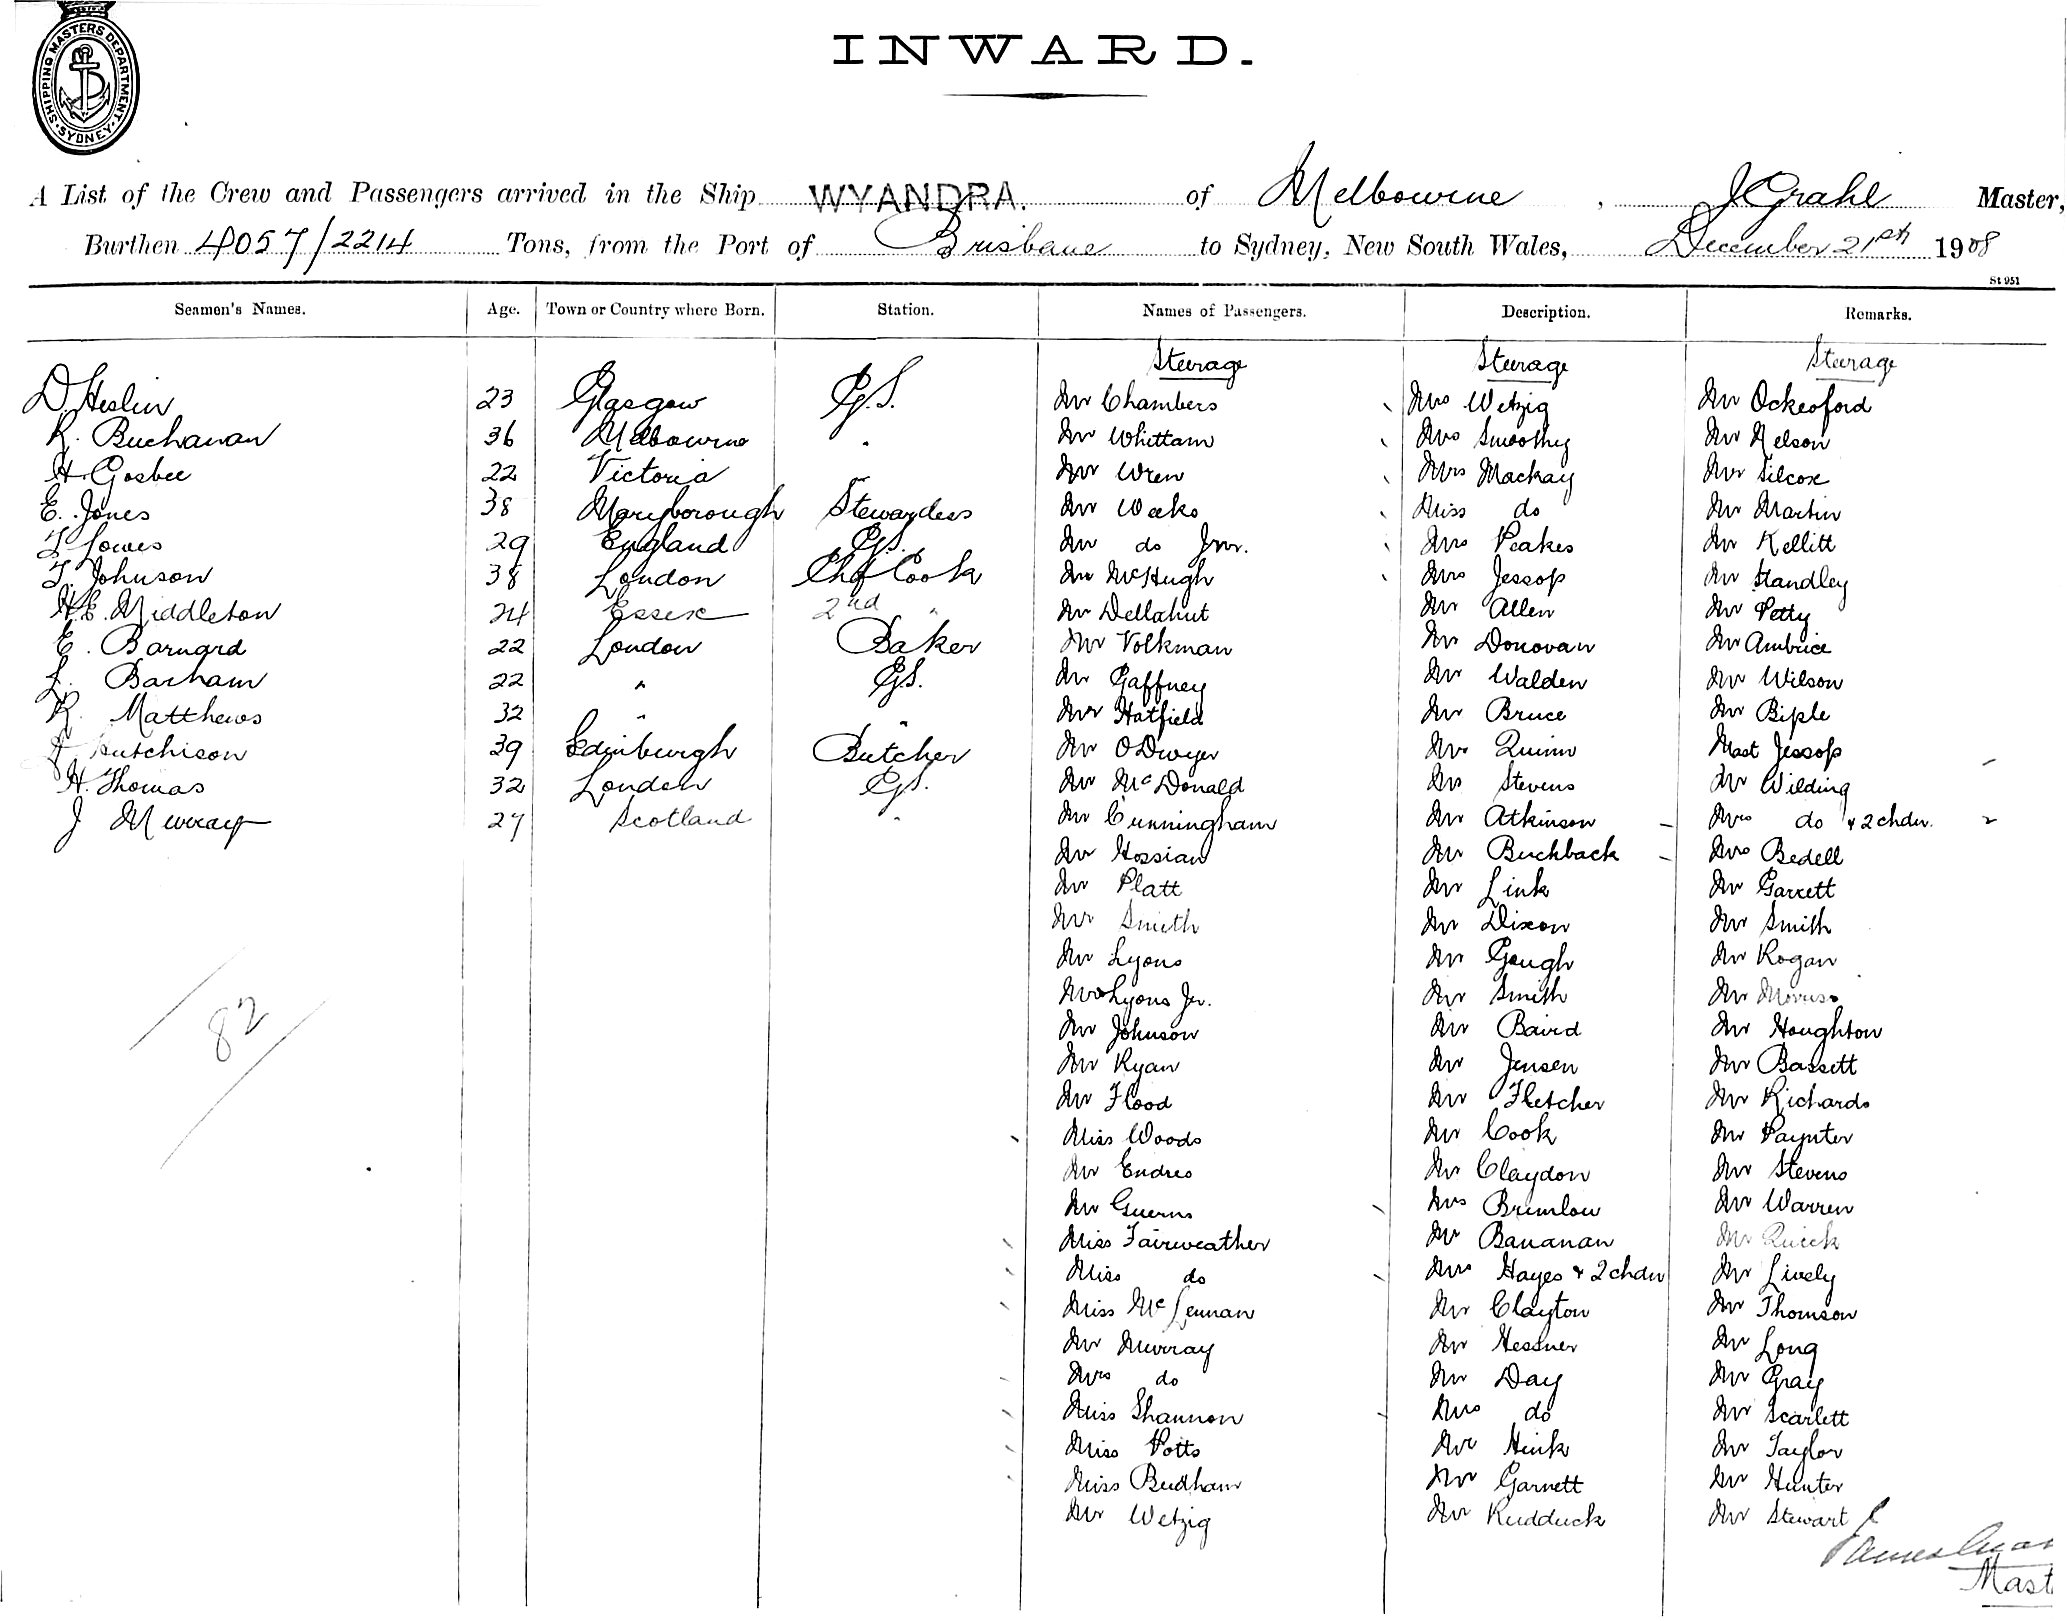 SHIPPING MASTERS DEPARTMENT. SYDNEY.
INWARD.
A List of the Crew and Passengers arrived in the Ship WYANDRA. of Melbourne, J Grahl Master,
Burthen 4057/2214 Tons, from the Port of Brisbane to Sydney, New South Wales, December 21st 1908
St 951
Seamen's Names. Age. Town or Country where Born. Station. Names of Passengers. Description. Remarks.
Steerage Steerage Steerage
D. Heslin 23 Glasgow G.S. Mr Chambers Mrs Wetzig Mr Ockesford
R. Buchanan 36 Melbourne " Mr Whittam Mrs Smoothy Mr Nelson
H. Gosbee 22 Victoria " Mr Wren Mrs Mackay Mr Silcox
E. Jones 38 Maryborough Stewardess Mr Weeks Miss do Mr Martin
T Lowes 29 England G.S. Mr do Jnr. Mrs Peakes Mr Kellitt
T. Johnson 38 London Chf Cook Mr McHugh Mrs Jessop Mr Standley
H.E. Middleton 24 Essex 2nd " Mr Dellahut Mr Allen Mr Petty
E. Barnard 22 London Baker Mr Volkman Mr Donovan Mr Ambrice
L. Barham 22 " G.S. Mr Gaffney Mr Walden Mr Wilson
R. Matthews 32 " " Mr Hatfield Mr Bruce Mr Biple
Hutchison 39 Edinburgh Butcher Mr O'Dwyer Mr Quinn Mast Jessop
H. Thomas 32 London G.S. Mr McDonald Mr Stevens Mr Wilding
J Murray 27 Scotland " Mr Cunningham Mr Atkinson Mrs do & 2 chdn.
Mr Hossian Mr Buchback Mrs Bedell
Mr Platt Mr Link Mr Garrett
Mr Smith Mr Dixon Mr Smith
Mr Lyons Mr Gough Mr Rogan
Mr Lyons Jr. Mr Smith Mr Moriss
Mr Johnson Mr Baird Mr Houghton
Mr Ryan Mr Jensen Mr Bassett
Mr Flood Mr Fletcher Mr Richards
Miss Woods Mr Cook Mr Paynter
Mr Endres Mr Claydon Mr Stevens
Mr Guerns Mrs Brimlow Mr Warren
Miss Fairweather Mr Bananan Mr Quick
Miss do Mrs Hayes & 2 chdn Mr Lively
Miss McLennan Mr Clayton Mr Thomson
Mr Murray Mr Hessner Mr Long
Mrs do Mr Day Mr Gray
Miss Shannon Mrs do Mr Scarlett
Miss Potts Mr Hink Mr Taylor
Miss Budham Mr Garnett Mr Hunter
Mr Wetzig Mr Rudduck Mr Stewart
82
Mast